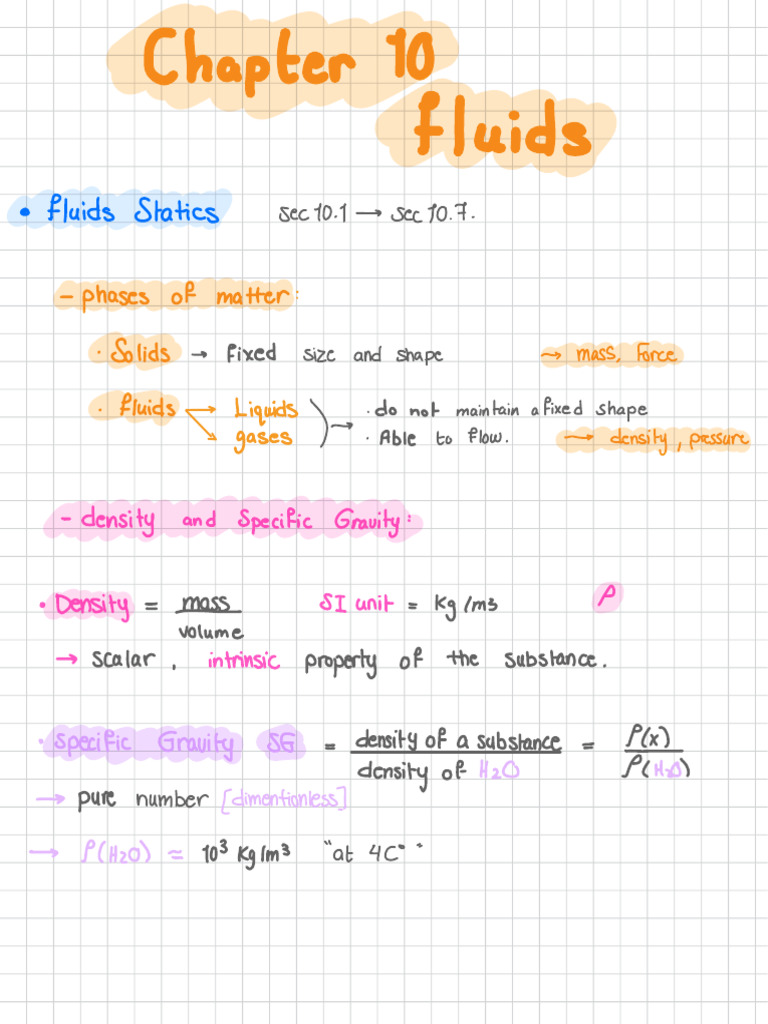 Chapter 10
fluids
• fluids Statics sec 10.1 → sec 10.7.
- phases of matter:
• Solids → fixed size and shape → mass, force
• fluids → Liquids → • do not maintain a fixed shape
→ gases • Able to flow. → density, pressure
- density and Specific Gravity:
• Density = mass / volume SI unit = Kg/m3 ρ
→ scalar, intrinsic property of the substance.
• specific Gravity SG = density of a substance / density of H2O = ρ(x) / ρ(H2O)
→ pure number [dimentionless]
→ ρ(H2O) ≈ 10³ Kg/m³ "at 4C°"